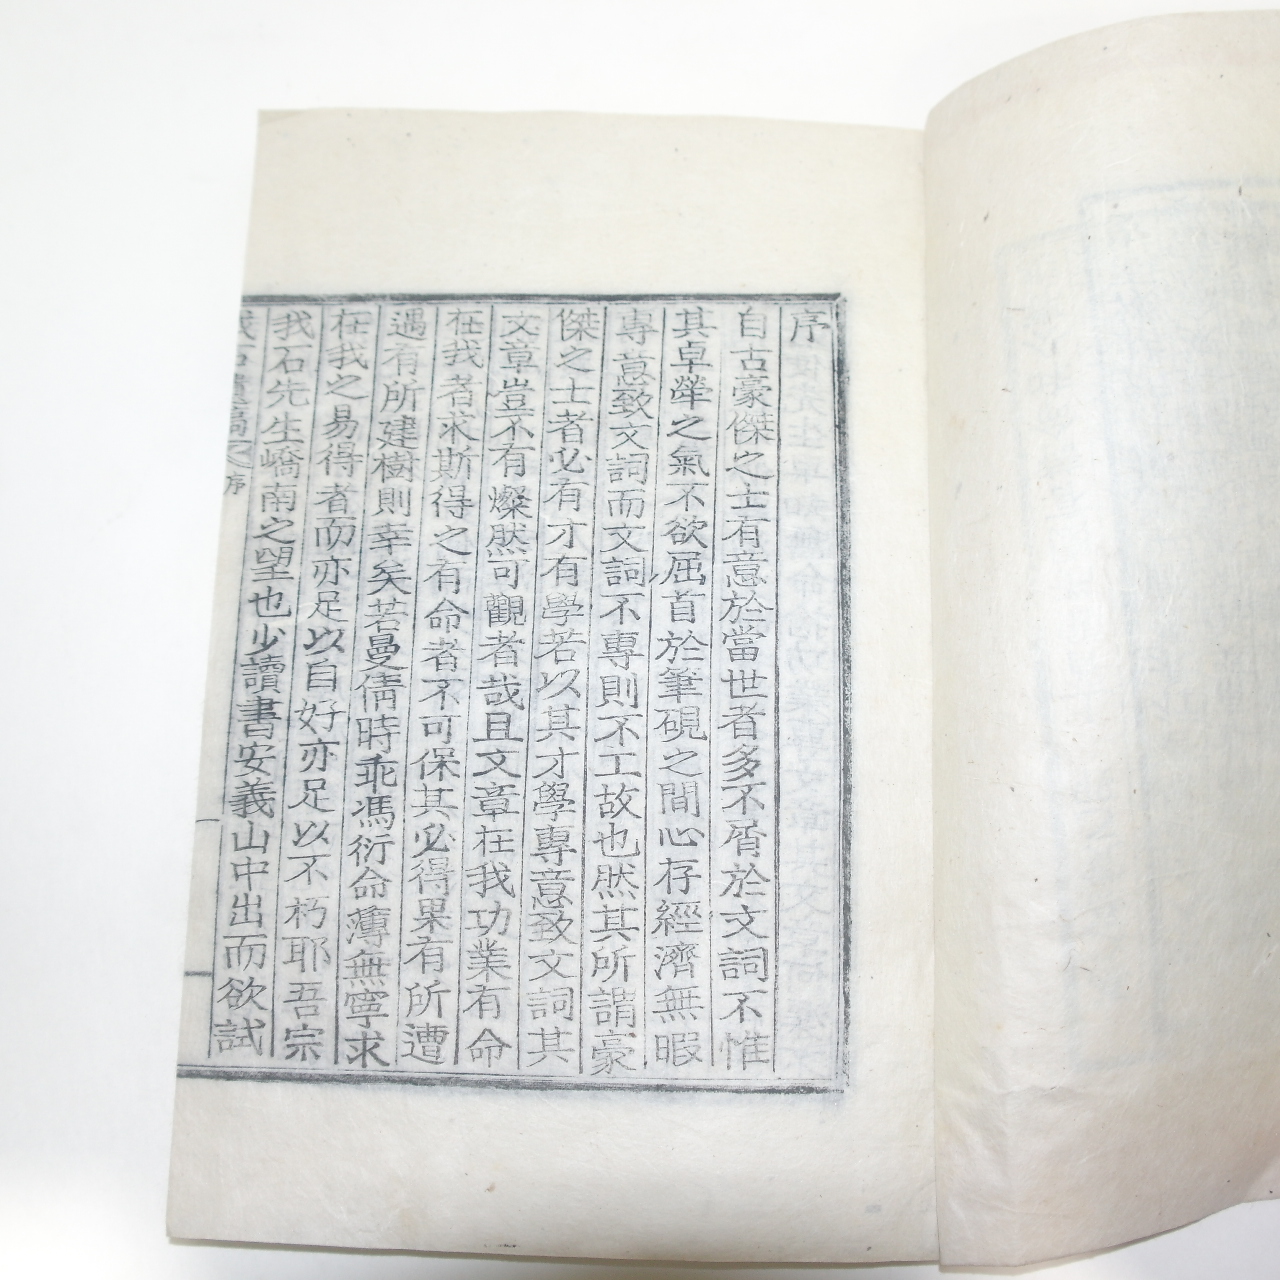 序
自古豪傑之士有意於當世者多不屑於文詞不惟
其卓犖之氣不欲屈首於筆硯之間心存經濟無暇
專意致文詞而文詞不專則不工故也然其所謂豪
傑之士者必有才有學若以其才學專意致文詞其
文章豈不有燦然可觀者哉且文章在我功業有命
在我者求斯得之有命者不可保其必得果有所遭
遇有所建樹則幸矣若曼倩時乖馮衍命薄無寧求
在我之易得者而亦足以自好亦足以不朽耶吾宗
我石先生嶠南之望也少讀書安義山中出而欲試
我石遺稿 序